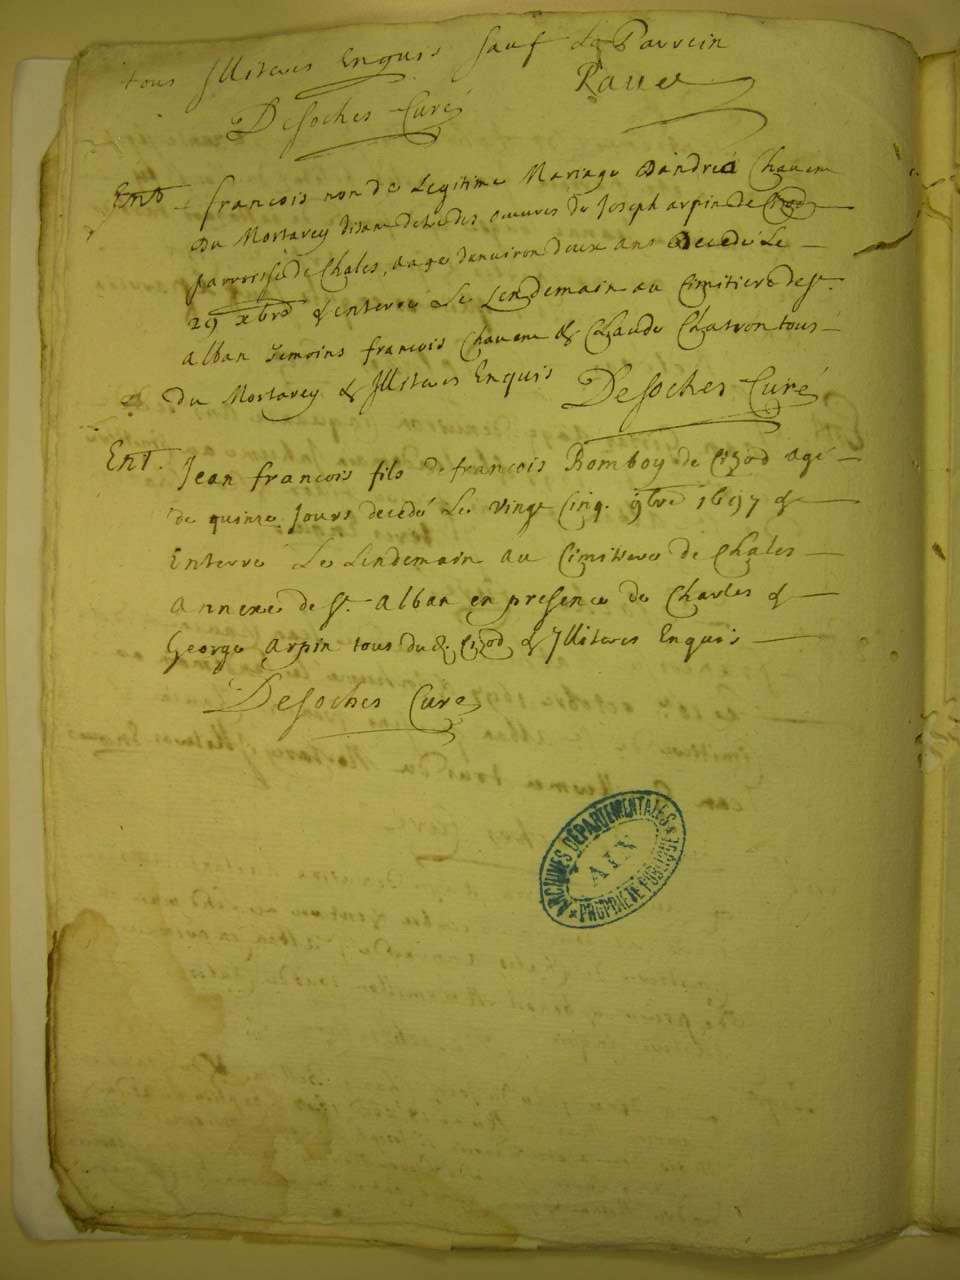 tous Illiteres Enquis sauf Le Parrein
Ravet
Desoches Curé
Ent. francois non de Legitime Mariage Dandréa Chavent
Du Mortarey disant de des oeuvres de Joseph arpin de
parroisse de Chales, aage danuiron deux ans Decedé Le
29 xbre & enterre Le Lendemain au Cimitiere de St.
Alban Temoins francois Chavent & Claude Chatron tous
Du Mortarey & Illiteres Enquis Desoches Curé
Ent. Jean francois fils de francois Bomboy de Cizod agé
de quinze Jours decedé Le Vingt Cinq. 9bre 1697 &
Enterré Le Lendemain au Cimittere de Chales
Annexe de St. Alban en presence de Charles &
George Arpin tous dud. Cizod & Illiteres Enquis
Desoches Curé
ARCHIVES DÉPARTEMENTALES
AIN
* PROPRIÉTÉ PUBLIQUE *